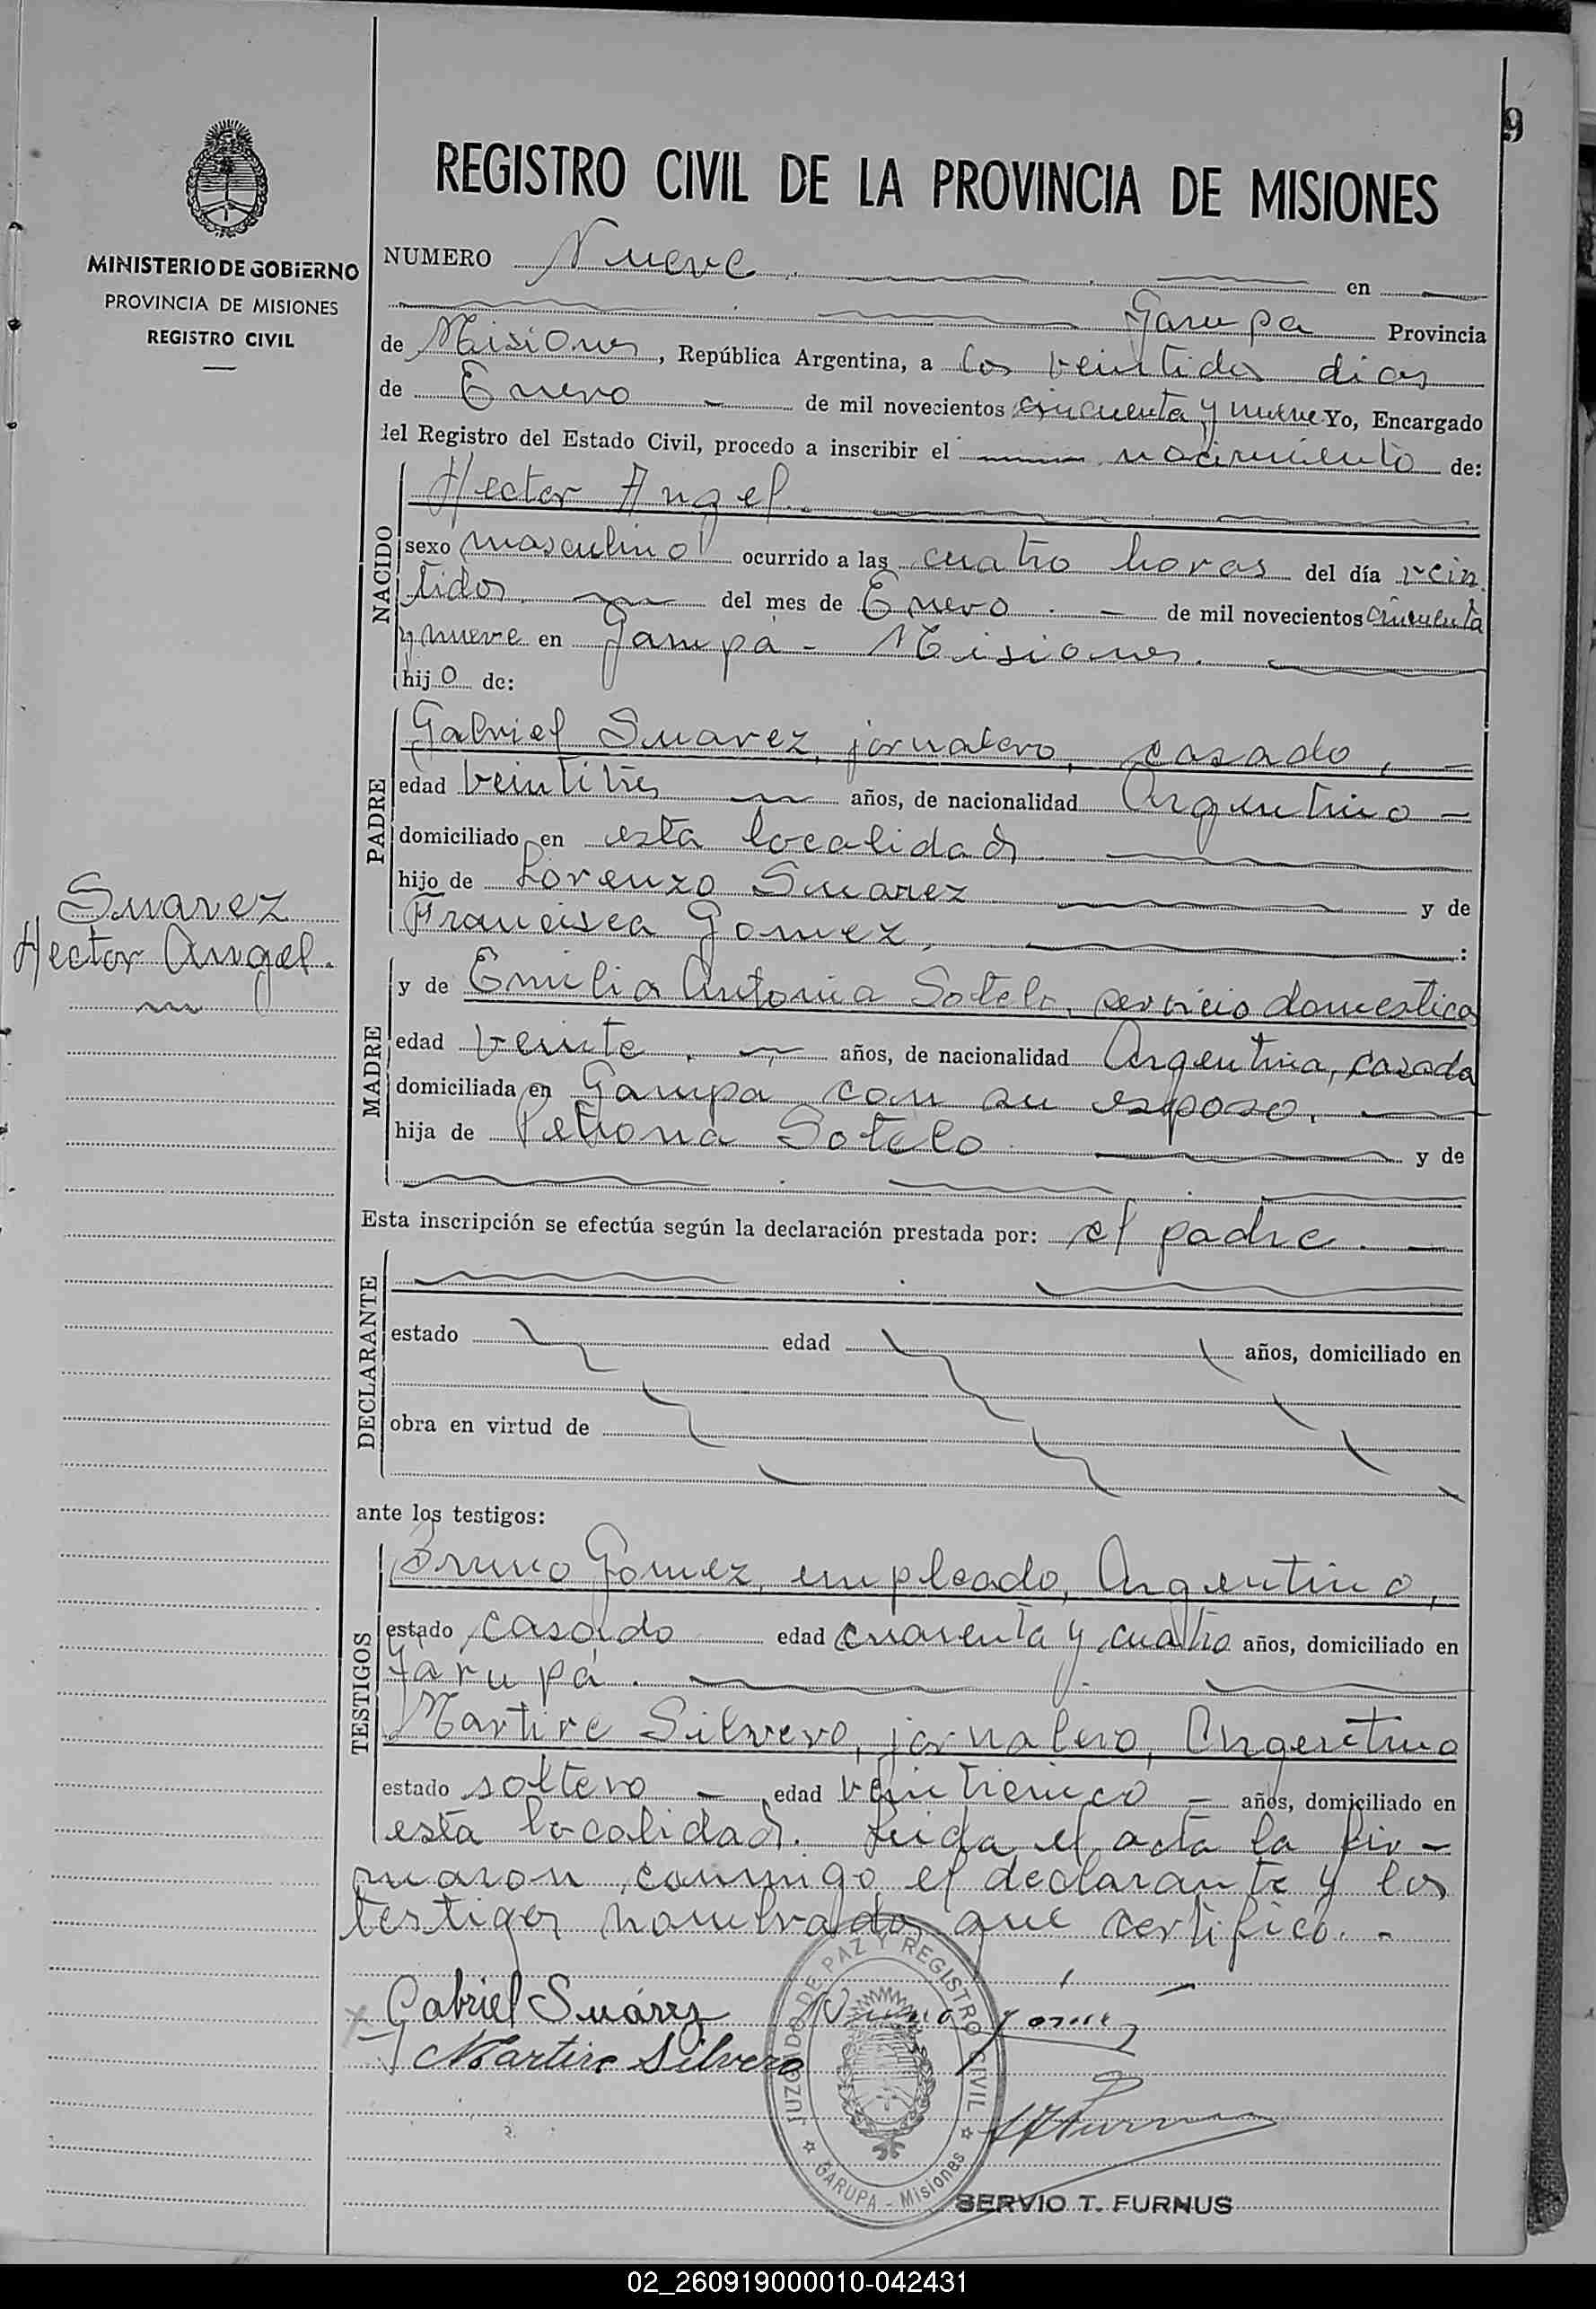 9
REGISTRO CIVIL DE LA PROVINCIA DE MISIONES
MINISTERIO DE GOBIERNO
PROVINCIA DE MISIONES
REGISTRO CIVIL
NUMERO Nueve en
Garupa Provincia
de Misiones, República Argentina, a los veintidos dias
de Enero de mil novecientos cincuenta y nueve Yo, Encargado
del Registro del Estado Civil, procedo a inscribir el nacimiento de:
Hector Angel.
NACIDO
sexo masculino ocurrido a las cuatro horas del día vein
tidos del mes de Enero de mil novecientos cincuenta
y nueve en Garupá - Misiones.
hijo de:
Gabriel Suarez, jornalero, casado,
PADRE
edad veintitrés años, de nacionalidad Argentino
domiciliado en esta localidad
hijo de Lorenzo Suarez y de
Francisca Gomez, :
Suarez
Hector Angel.
MADRE
y de Emilia Antonia Sotelo, servicio domestico
edad veinte años, de nacionalidad Argentina, casada
domiciliada en Garupa con su esposo.
hija de Petrona Sotelo y de
Esta inscripción se efectúa según la declaración prestada por: el padre
DECLARANTE
estado edad años, domiciliado en
obra en virtud de
ante los testigos:
TESTIGOS
Bruno Gomez, empleado, Argentino,
estado casado edad cuarenta y cuatro años, domiciliado en
Garupá.
Martire Silvero, jornalero, Argentino
estado soltero edad veinticinco años, domiciliado en
esta localidad. Leida el acta la fir-
maron conmigo el declarante y los
testigos nombrados que certifico. -
Gabriel Suárez Bruno Gomez
Martire Silvero
JUZGADO DE PAZ Y REGISTRO CIVIL
GARUPA - Misiones
SERVIO T. FURNUS
02_260919000010-042431